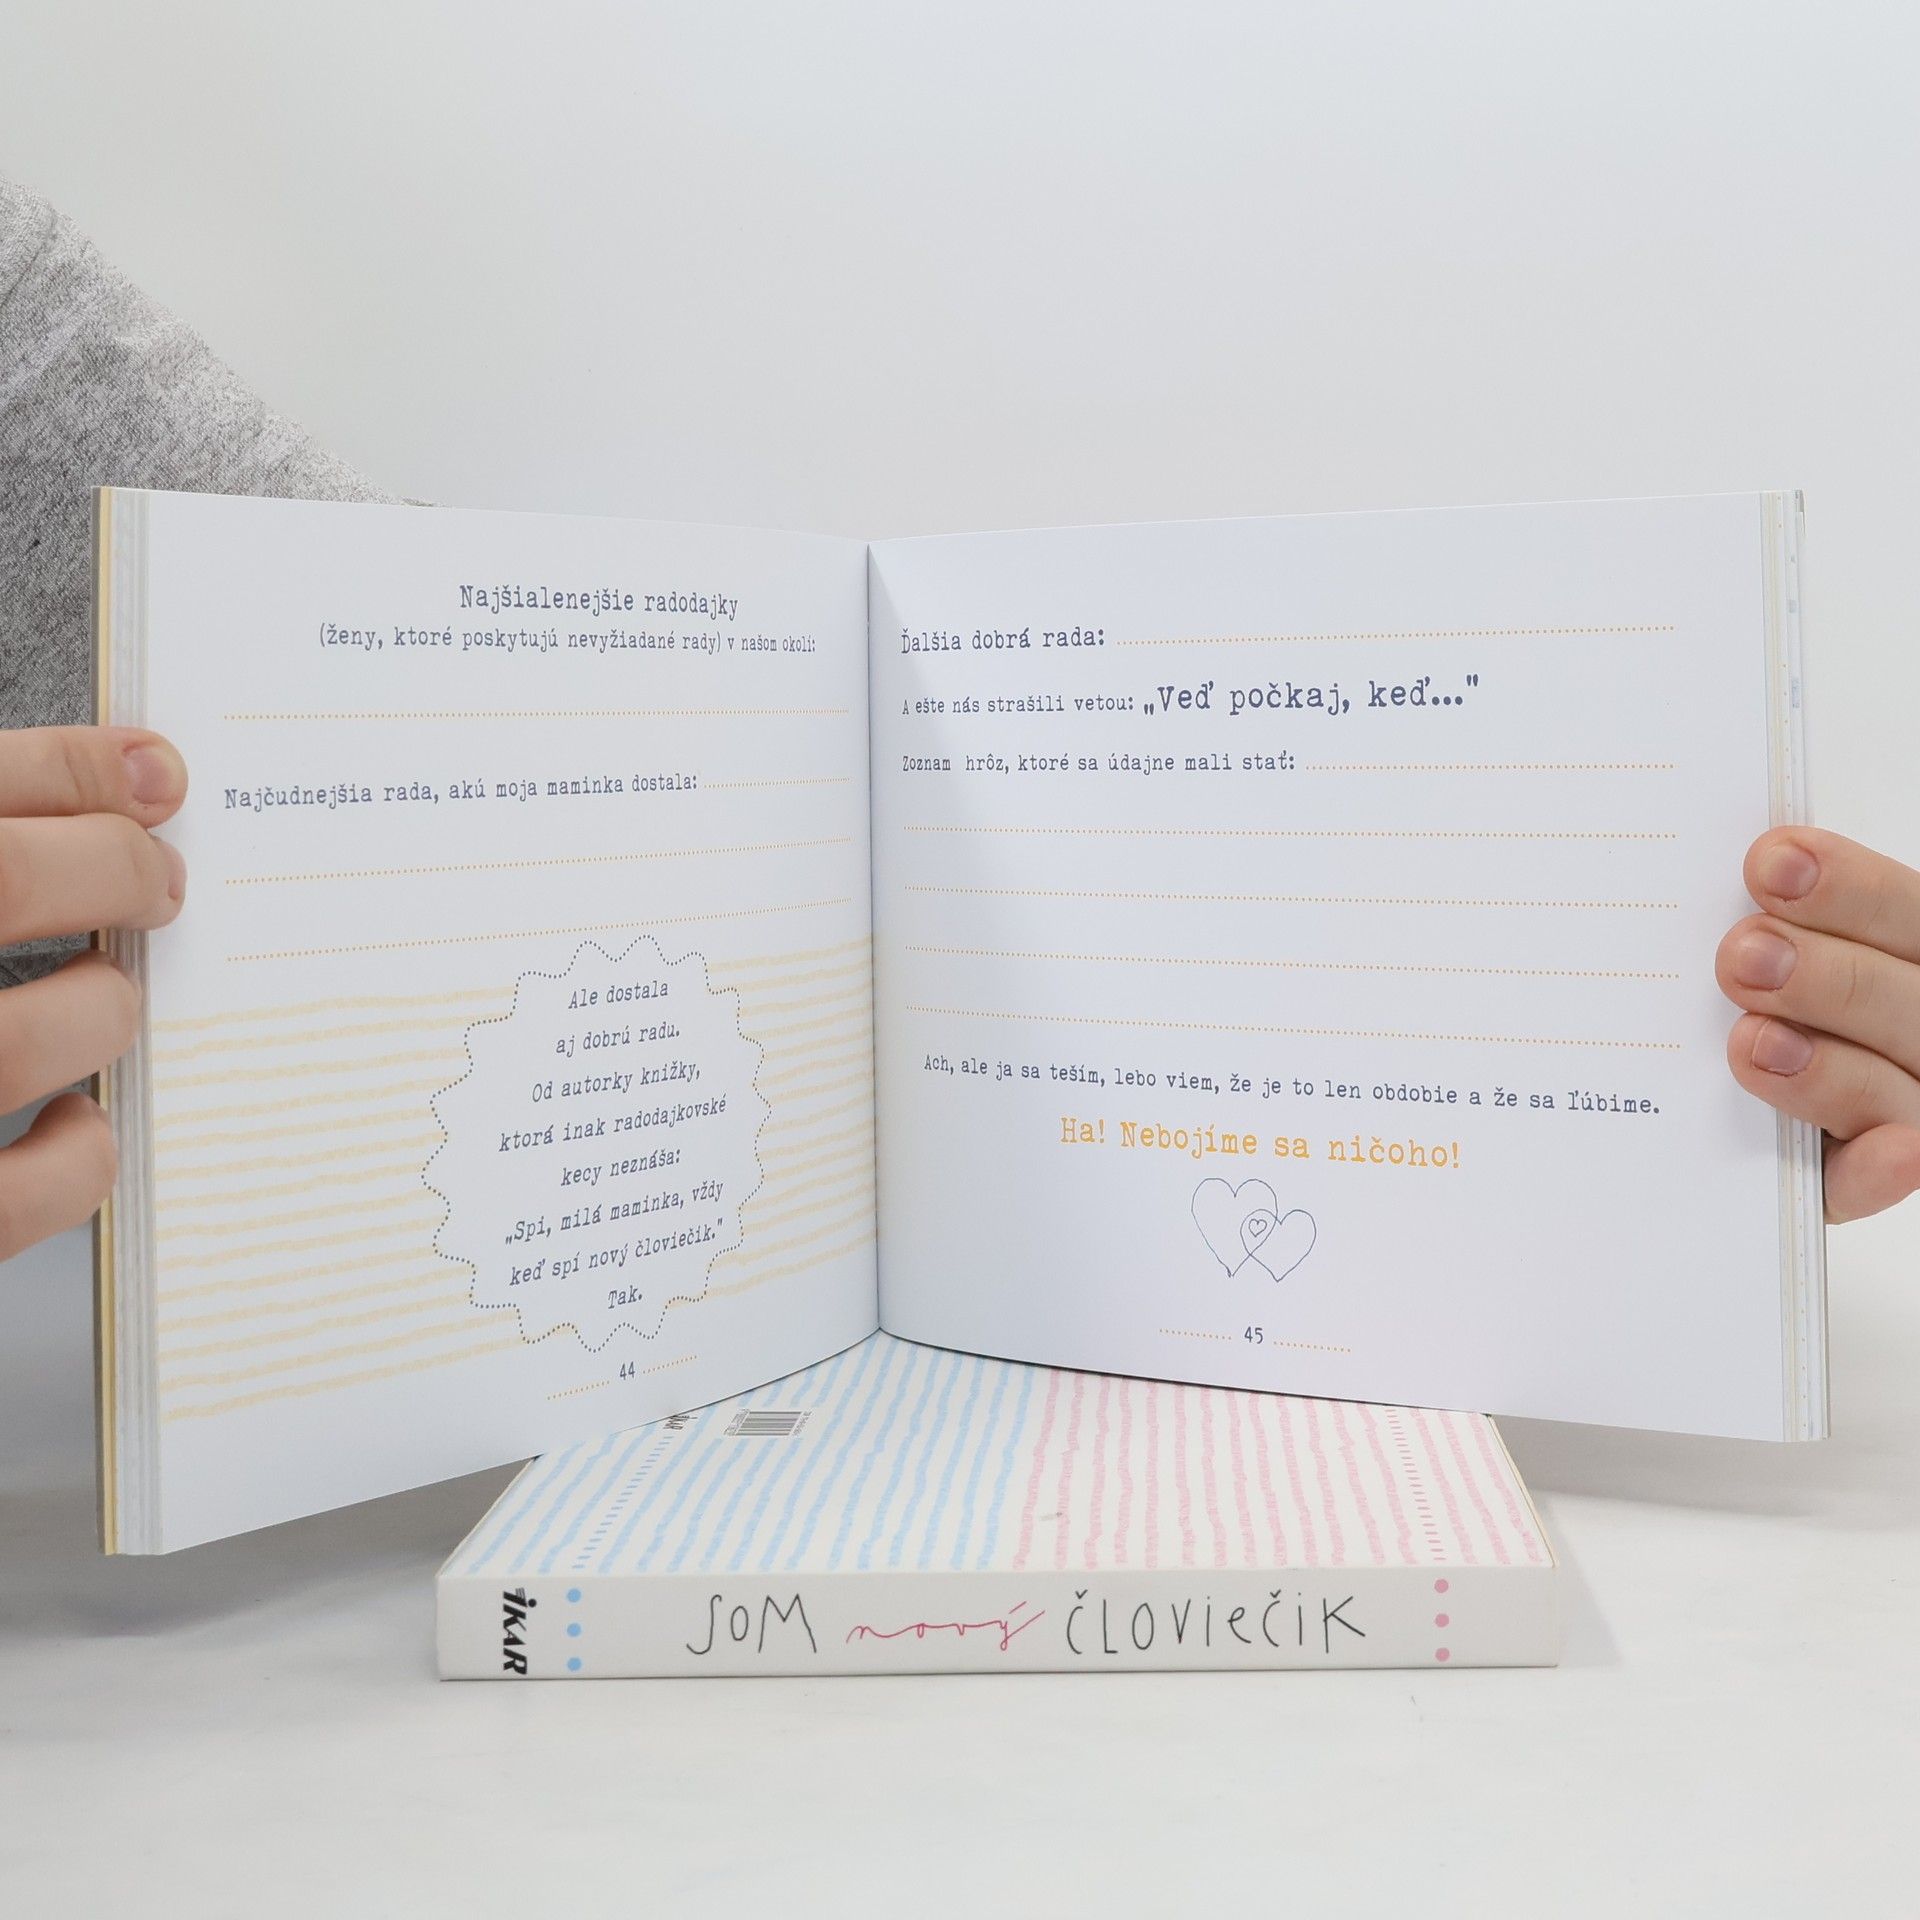 Najšialenejšie radodajky
(ženy, ktoré poskytujú nevyžiadané rady) v našom okolí:
Najčudnejšia rada, akú moja maminka dostala:
Ale dostala
aj dobrú radu.
Od autorky knižky,
ktorá inak radodajkovské
kecy neznáša:
„Spi, milá maminka, vždy
keď spí nový človiečik."
Tak.
44
Ďalšia dobrá rada:
A ešte nás strašili vetou: „Veď počkaj, keď..."
Zoznam hrôz, ktoré sa údajne mali stať:
Ach, ale ja sa teším, lebo viem, že je to len obdobie a že sa ľúbime.
Ha! Nebojíme sa ničoho!
45
IKAR
IKAR
SOM nový ČLOVIEČIK